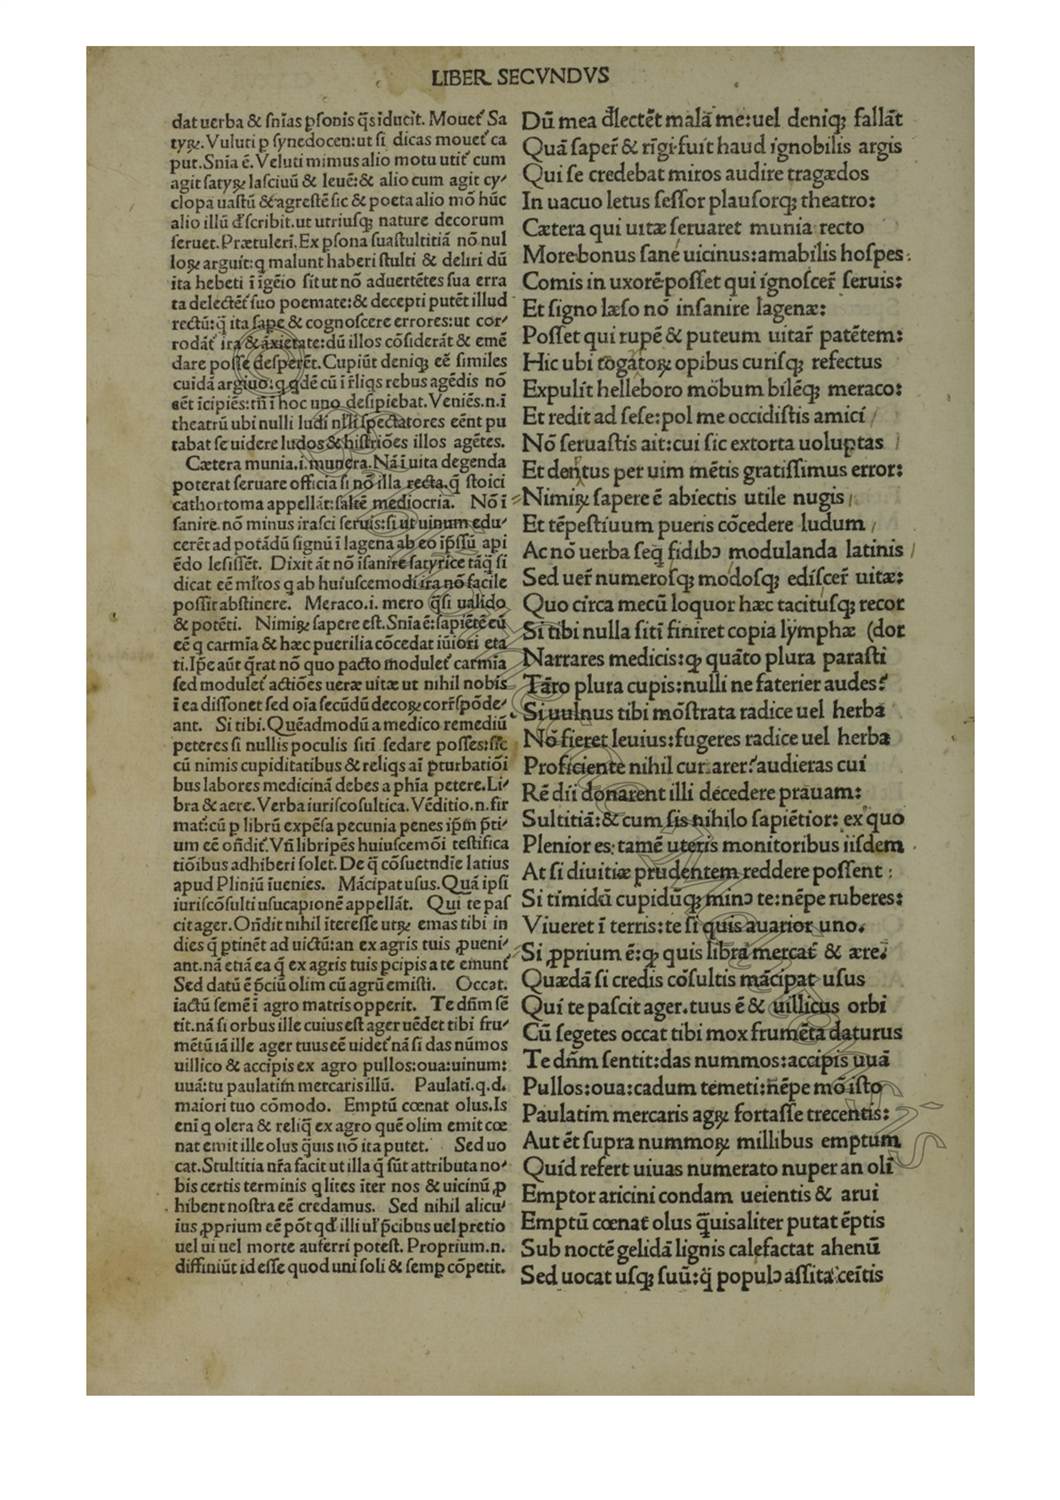 LIBER SECVNDVS
dat uerba & ſnīas ꝑſonis q̄s īducit. Mouet᷑ Sa
tyrꝝ. Vuluti p ſynedocen: ut ſi dicas mouet᷑ ca
put. Snīa ē. Veluti mimus alio motu utit᷑ cum
agit ſatyrꝝ laſciuū & leuē: & alio cum agit cy/
clopa uaſtū & agreſtē ſic & poeta alio mō hūc
alio illū d̄ſcribit. ut utriuſq; nature decorum
ſeruet. Prætulerī. Ex ꝑſona ſua ſtultitiā nō nul
loꝝ arguit: q malunt haberi ſtulti & deliri dū
ita hebeti ī īgēio ſit ut nō aduertētes ſua erra
ta delectēt ſuo poemate: & decepti putēt illud
rectū: q̄ ita ſape & cognoſcere errores: ut cor/
rodāt᷑ ira & āxietate: dū illos cōſiderāt & emē
dare poſſe deſperēt. Cupiūt deniq; eē ſimiles
cuidā argiuo: q qdē cū ī r̄liqs rebus agēdis nō
eēt īcipiēs: tn̄ ī hoc uno deſipiebat. Veniēs. n. ī
theatrū ubi nulli ludi nlli ſpectatores eēnt pu
tabat ſe uidere ludos & hiſtriōes illos agētes.
Cætera munia. i. munera. Nā ī uita degenda
poterat ſeruare officia ſi nō illa recta. q̄ ſtoici
cathortoma appellāt: ſaltē mediocria. Nō ī
ſanire. nō minus iraſci ſeruis: ſi ut uinum edu/
cerēt ad potādū ſignū ī lagena ab eo īpſſū api
ēdo leſiſſēt. Dixit āt nō īſanire ſatyrice tāq̄ ſi
dicat eē ml̄tos q ab huiuſcemodi ira nō facile
poſſit abſtinere. Meraco. i. mero q̄ſi ualido
& potēti. Nimiꝝ ſapere eſt. Snīa ē: ſapiētē eū
eē q carmīa & hæc puerilia cōcedat iūiori eta
ti. Ip̄e aūt q̄rat nō quo pacto modulet᷑ carmīa
ſed modulet᷑ actiōes ueræ uitæ ut nihil nobis
ī ea diſſonet ſed oīa ſecūdū decoꝝ corr̄ſpōde/
ant. Si tibi. Quēadmodū a medico remediū
peteres ſi nullis poculis ſiti ſedare poſſes: ſic
cū nimis cupiditatibus & reliqs aī pturbatiōi
bus labores medicinā debes a phīa petere. Li/
bra & aere. Verba iuriſcoſultica. Vēditio. n. fir
mat᷑: cū p librū expēſa pecunia penes ip̄m p̄ti/
um eē oñdit᷑. Vn̄ libripēs huiuſcemōi teſtifica
tiōibus adhiberi ſolet. De q̄ cōſuetndie latius
apud Pliniū iuenies. Mācipat uſus. Quā ipſi
iuriſcōſulti uſucapionē appellāt. Qui te paſ
cit ager. Oñdit nihil ītereſſe utrꝝ emas tibi in
dies q̄ ptinēt ad uictū: an ex agris tuis ꝓueni/
ant. nā etiā ea q̄ ex agris tuis pcipis a te emunt᷑
Sed datū ē p̄ciū olim cū agrū emiſti. Occat.
iactū ſemē ī agro matris opperit. Te dn̄m ſē
tit. nā ſi orbus ille cuius eſt ager uēdet tibi fru/
mētū iā ille ager tuus eē uidet᷑ nā ſi das nūmos
uillico & accipis ex agro pullos: oua: uinum:
uuā: tu paulatim mercaris illū. Paulati. q. d.
maiori tuo cōmodo. Emptū cœnat olus. Is
enī q olera & reliq̄ ex agro quē olim emit cœ
nat emit ille olus q̄uis nō ita putet. Sed uo
cat. Stultitia nr̄a facit ut illa q̄ ſūt attributa no/
bis certis terminis q lites īter nos & uicinū ꝓ
hibent noſtra eē credamus. Sed nihil alicu/
ius ꝓprium eē pōt qd̄ illi ul̄ p̄cibus uel pretio
uel ui uel morte auferri poteſt. Proprium. n.
diffiniūt id eſſe quod uni ſoli & ſemp cōpetit.
Dū mea d̄lectēt mala me: uel deniq; fallāt
Quā ſaper̄ & rīgi. fuit haud ignobilis argis
Qui ſe credebat miros audire tragædos
In uacuo letus ſeſſor plauſorq; theatro:
Cætera qui uitæ ſeruaret munia recto
More: bonus ſane uicinus: amabilis hoſpes:
Comis in uxorē poſſet qui ignoſcer̄ ſeruis:
Et ſigno læſo nō inſanire lagenæ:
Poſſet qui rupē & puteum uitar̄ patētem:
Hic ubi cogatoꝝ opibus curiſq; refectus
Expulit helleboro mōbum bilēq; meraco:
Et redit ad ſeſe: pol me occidiſtis amici /
Nō ſeruaſtis ait: cui ſic extorta uoluptas
Et demtus per uim mētis gratiſſimus error:
Nimiꝝ ſapere ē abiectis utile nugis /
Et tēpeſtiuum pueris cōcedere ludum /
Ac nō uerba ſeq̄ fidibꝰ modulanda latinis /
Sed uer̄ numeroſq; modoſq; ediſcer̄ uitæ:
Quo circa mecū loquor hæc tacituſq; recor
Si tibi nulla ſitī finiret copia lymphæ (dor
Narrares medicis: q; quāto plura paraſti
Tāro plura cupis: nulli ne faterier audes?
Si uulnus tibi mōſtrata radice uel herba
Nō fieret leuius: fugeres radice uel herba
Proficiente nihil curarer? audieras cui
Rē dii donarent illi decedere prauam:
Sultitiā: & cum ſis nihilo ſapiētior: ex quo
Plenior es: tamē uteris monitoribus iiſdem
At ſi diuitiæ prudentem reddere poſſent:
Si timidū cupidūq; minꝰ te: nēpe ruberes:
Viueret ī terris: te ſi quis auarior uno.
Si ꝓprium ē: q; quis libra mercat᷑ & ære:
Quædā ſi credis cōſultis mācipat uſus
Qui te paſcit ager. tuus ē & uillicus orbi
Cū ſegetes occat tibi mox frumēta daturus
Te dn̄m ſentit: das nummos: accipis uuā
Pullos: oua: cadum temeti: nēpe mō iſto
Paulatim mercaris agꝝ fortaſſe trecentis:
Aut ēt ſupra nummoꝝ millibus emptum
Quid refert uiuas numerato nuper an olī
Emptor aricini condam ueientis & arui
Emptū cœnat olus q̄uis aliter putat ēptis
Sub noctē gelidā lignis calefactat ahenū
Sed uocat uſq; ſuū: q̄ populꝰ aſſita ceītis